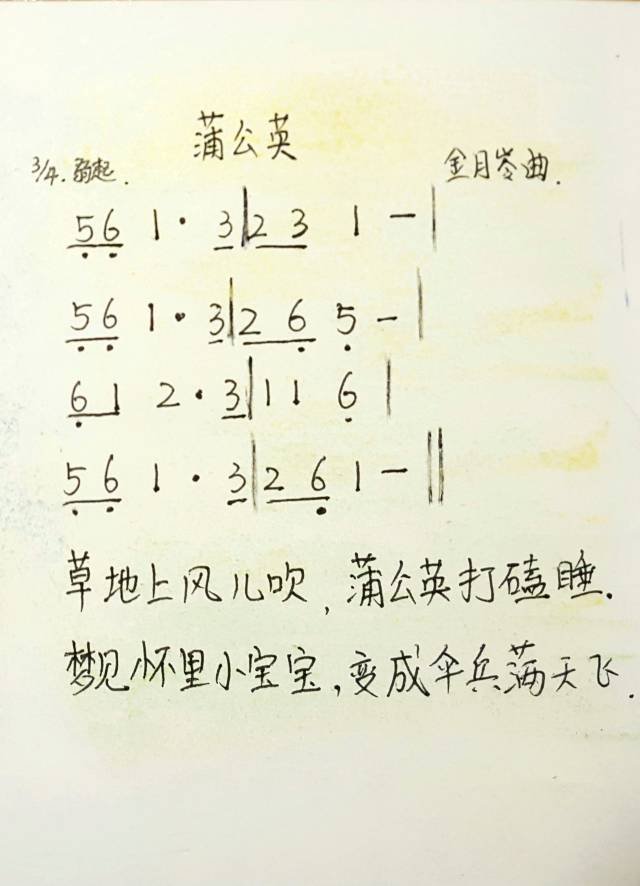 蒲公英
3/4. 弱起. 金月苓曲.
5̣6̣ 1· 3|2 3 1 —|
5̣6̣ 1· 3|2 6̣ 5̣ —|
6̣1 2· 3|1 1 6̣ |
5̣6̣ 1· 3|2 6̣ 1 —||
草地上风儿吹,蒲公英打磕睡.
梦见怀里小宝宝,变成伞兵满天飞.